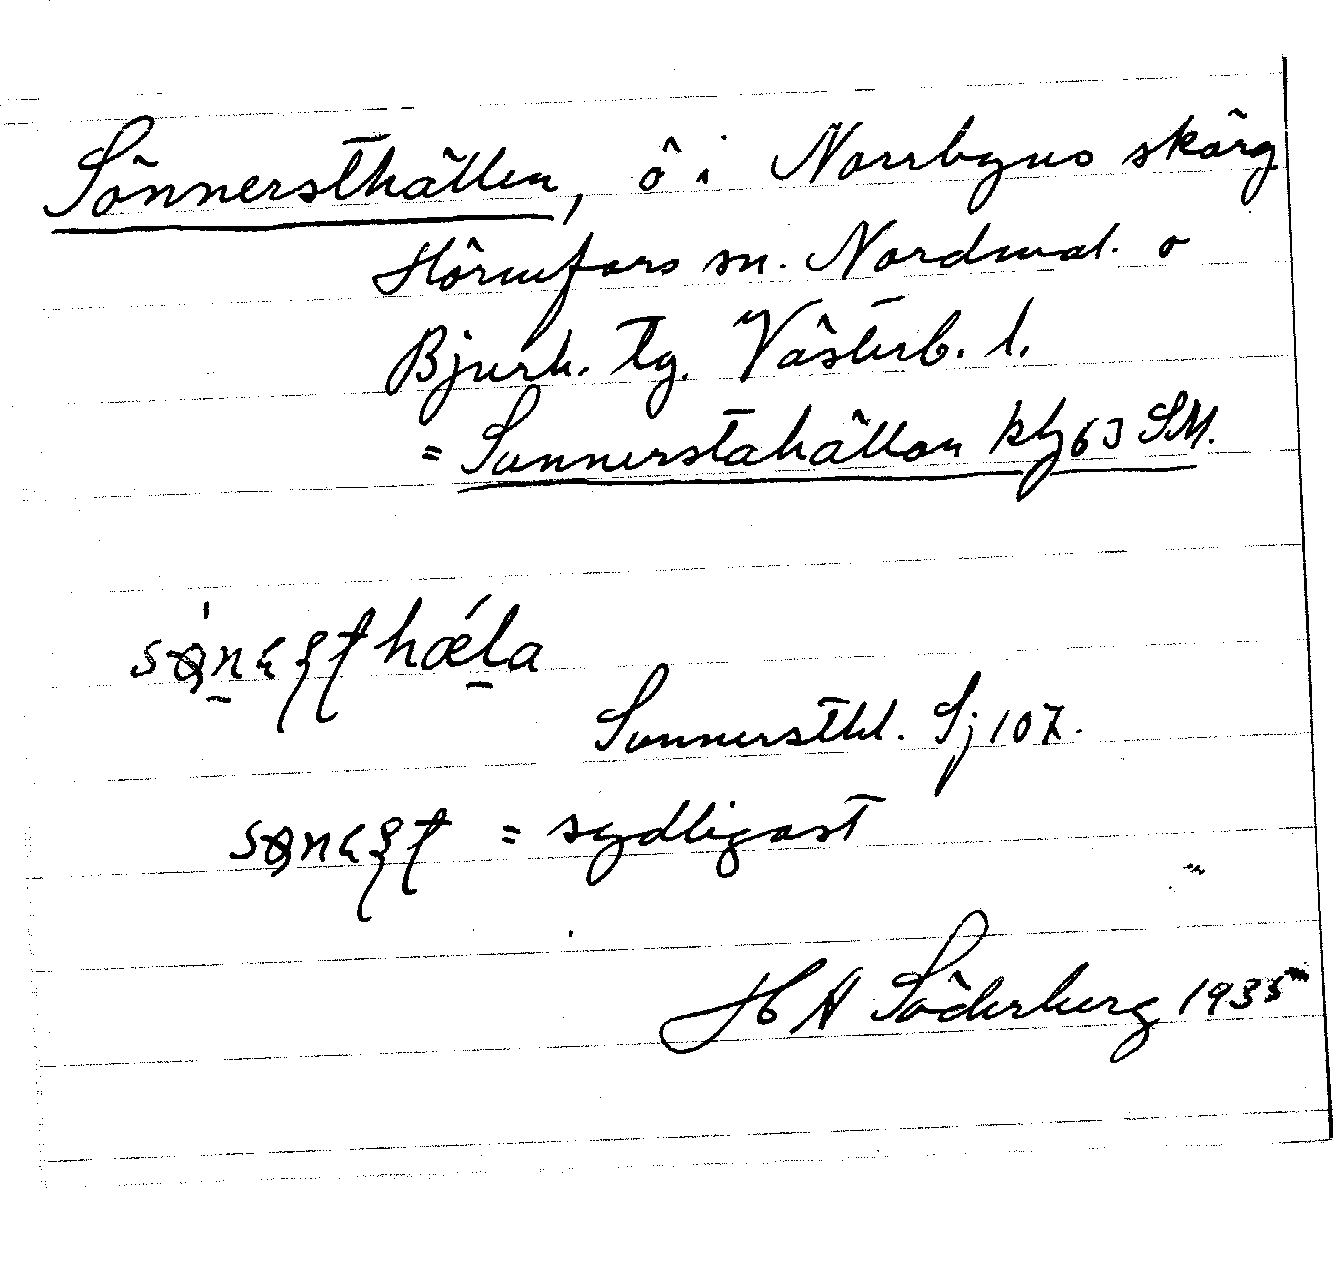 Sönnersthällen, ö i Norrbyns skärg
Hörnefors sn. Nordmal. o
Bjurh. tg. Västerb. l.
= Sunnerstahällan kbl 63 SM.
hǽla
Sunnersthl. Sj 107.
= sydligast
H A Söderberg 1935